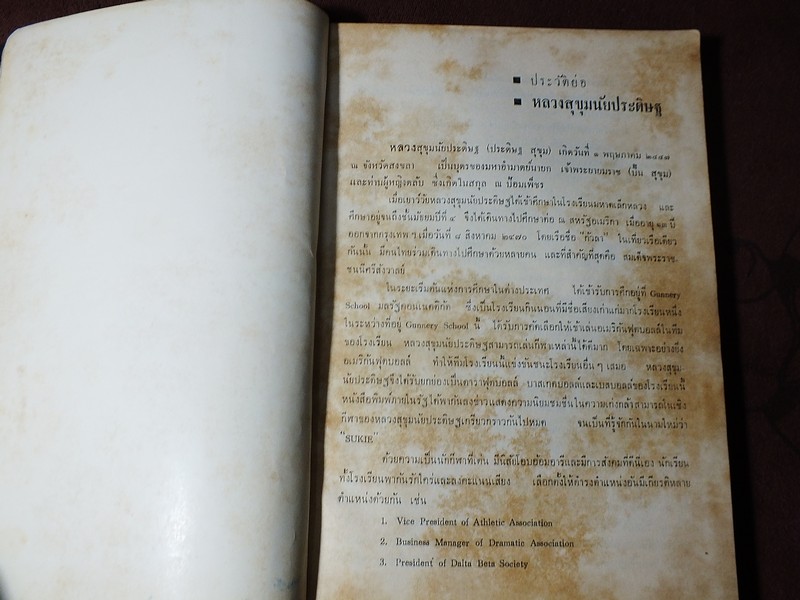 ▪ ประวัติย่อ
▪ หลวงสุขุมนัยประดิษฐ
หลวงสุขุมนัยประดิษฐ (ประดิษฐ สุขุม) เกิดวันที่ ๑ พฤษภาคม ๒๔๔๗
ณ จังหวัดสงขลา เป็นบุตรของมหาอำมาตย์นายก เจ้าพระยายมราช (ปั้น สุขุม)
และท่านผู้หญิงตลับ ซึ่งเกิดในสกุล ณ ป้อมเพ็ชร
เมื่อเยาว์วัยหลวงสุขุมนัยประดิษฐได้เข้าศึกษาในโรงเรียนมหาดเล็กหลวง และ
ศึกษาอยู่จนถึงชั้นมัธยมปีที่ ๔ จึงได้เดินทางไปศึกษาต่อ ณ สหรัฐอเมริกา เมื่ออายุ ๑๓ ปี
ออกจากกรุงเทพ ฯ เมื่อวันที่ ๘ สิงหาคม ๒๔๗๐ โดยเรือชื่อ "กัวลา" ในเที่ยวเรือเดียว
กันนั้น มีคนไทยร่วมเดินทางไปศึกษาด้วยหลายคน และที่สำคัญที่สุดคือ สมเด็จพระราช-
ชนนีศรีสังวาลย์
ในระยะเริ่มต้นแห่งการศึกษาในต่างประเทศ ได้เข้ารับการศึกอยู่ที่ Gunnery
School มลรัฐคอนเนคติกัต ซึ่งเป็นโรงเรียนกินนอนที่มีชื่อเสียงเก่าแก่มากโรงเรียนหนึ่ง
ในระหว่างที่อยู่ Gunnery School นี้ ได้รับการคัดเลือกให้เข้าเล่นอเมริกันฟุตบอลล์ในทีม
ของโรงเรียน หลวงสุขุมนัยประดิษฐสามารถเล่นกีฬาเหล่านี้ได้ดีมาก โดยเฉพาะอย่างยิ่ง
อเมริกันฟุตบอลล์ ทำให้ทีมโรงเรียนนี้แข่งขันชนะโรงเรียนอื่น ๆ เสมอ หลวงสุขุม-
นัยประดิษฐจึงได้รับยกย่องเป็นดาราฟุตบอลล์ บาสเกตบอลล์และเบสบอลล์ของโรงเรียนนี้
หนังสือพิมพ์ภายในรัฐได้พากันลงข่าวแสดงความนิยมชมชื่นในความเก่งกล้าสามารถในเชิง
กีฬาของหลวงสุขุมนัยประดิษฐเกรียวกราวกันไปหมด จนเป็นที่รู้จักกันในนามใหม่ว่า
"SUKIE"
ด้วยความเป็นนักกีฬาที่เด่น มีนิสัยโอบอ้อมอารีและมีการสังคมที่ดีนี่เอง นักเรียน
ทั้งโรงเรียนพากันรักใคร่และลงคะแนนเสียง เลือกตั้งให้ดำรงตำแหน่งอันมีเกียรติหลาย
ตำแหน่งด้วยกัน เช่น
1. Vice President of Athletic Association
2. Business Manager of Dramatic Association
3. President of Dalta Beta Society